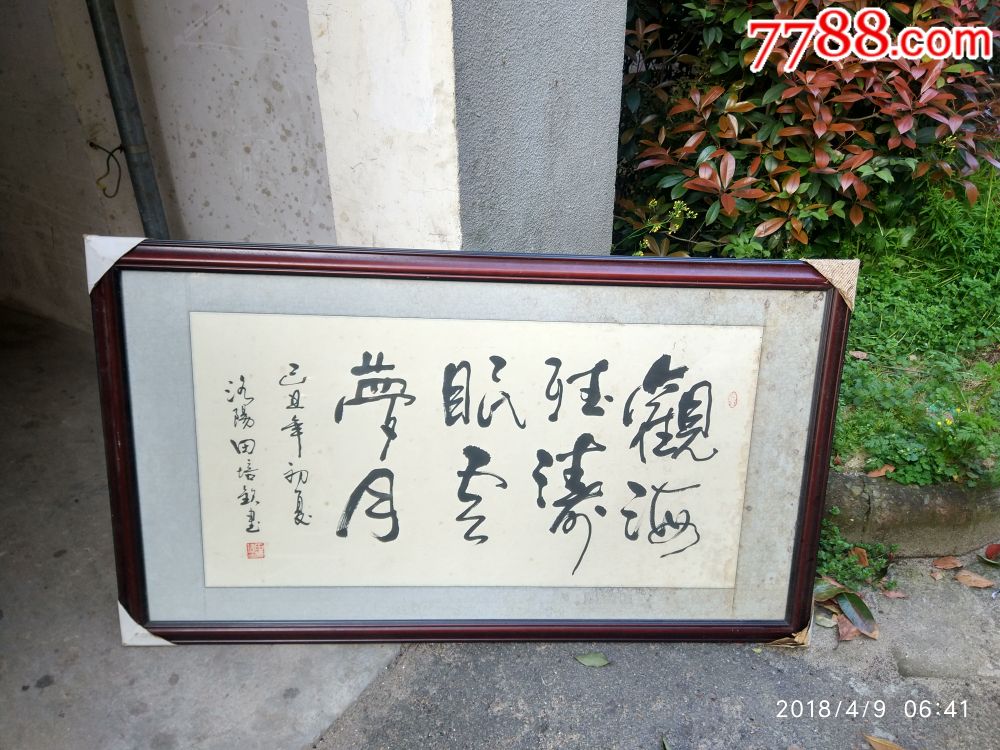 7788.com
觀海
聽濤
眠雲
夢月
己丑年初夏
洛陽田培欽書
2018/4/9 06:41